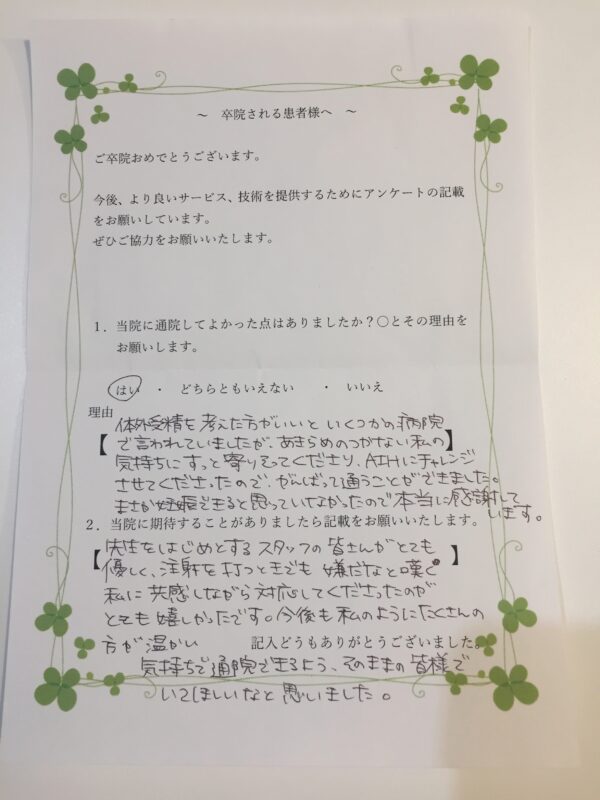 ～ 卒院される患者様へ ～
ご卒院おめでとうございます。
今後、より良いサービス、技術を提供するためにアンケートの記載
をお願いしています。
ぜひご協力をお願いいたします。
1．当院に通院してよかった点はありましたか？〇とその理由を
お願いします。
はい ・ どちらともいえない ・ いいえ
理由
【体外受精を考えた方がいいといくつかの病院
で言われていましたが、あきらめのつかない私の】
気持ちにすっと寄りそってくださり、AIHにチャレンジ
させてくださったので、がんばって通うことができました。
まさか妊娠できると思っていなかったので本当に感謝して
います。
2．当院に期待することがありましたら記載をお願いいたします。
【先生をはじめとするスタッフの皆さんがとても】
優しく、注射を打つときでも嫌だなと嘆く
私に共感しながら対応してくださったのが
とても嬉しかったです。今後も私のようにたくさんの
方が温かい
記入どうもありがとうございました。
気持ちで通院できるよう、そのままの皆様で
いてほしいなと思いました。